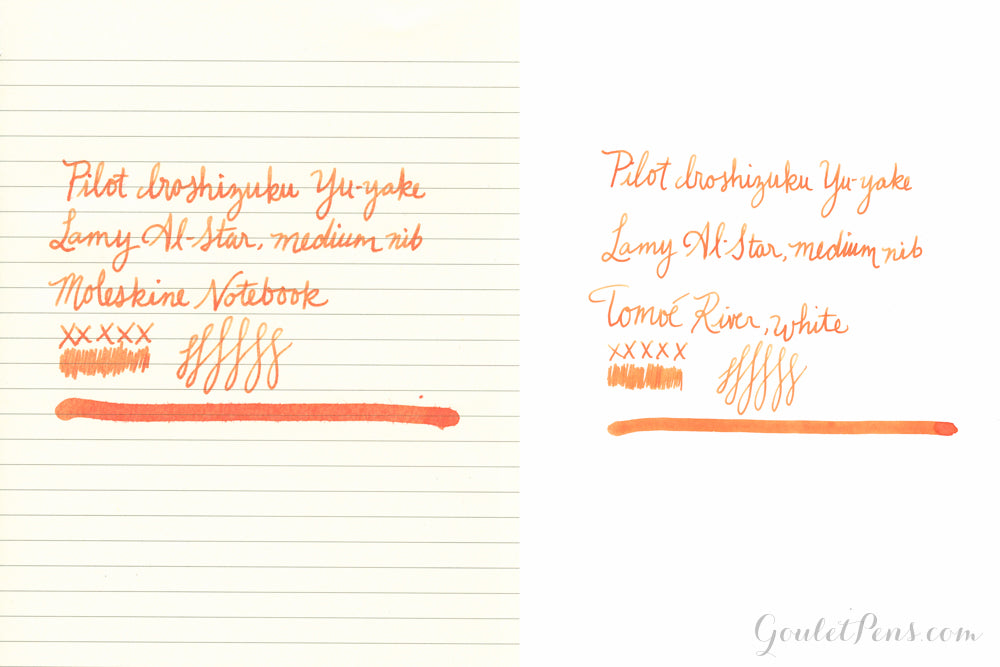 Pilot Iroshizuku Yu-yake
Lamy Al-Star, medium nib
Moleskine Notebook
XXXXX
Pilot Iroshizuku Yu-yake
Lamy Al-Star, medium nib
Tomoé River, white
XXXXX
GouletPens.com